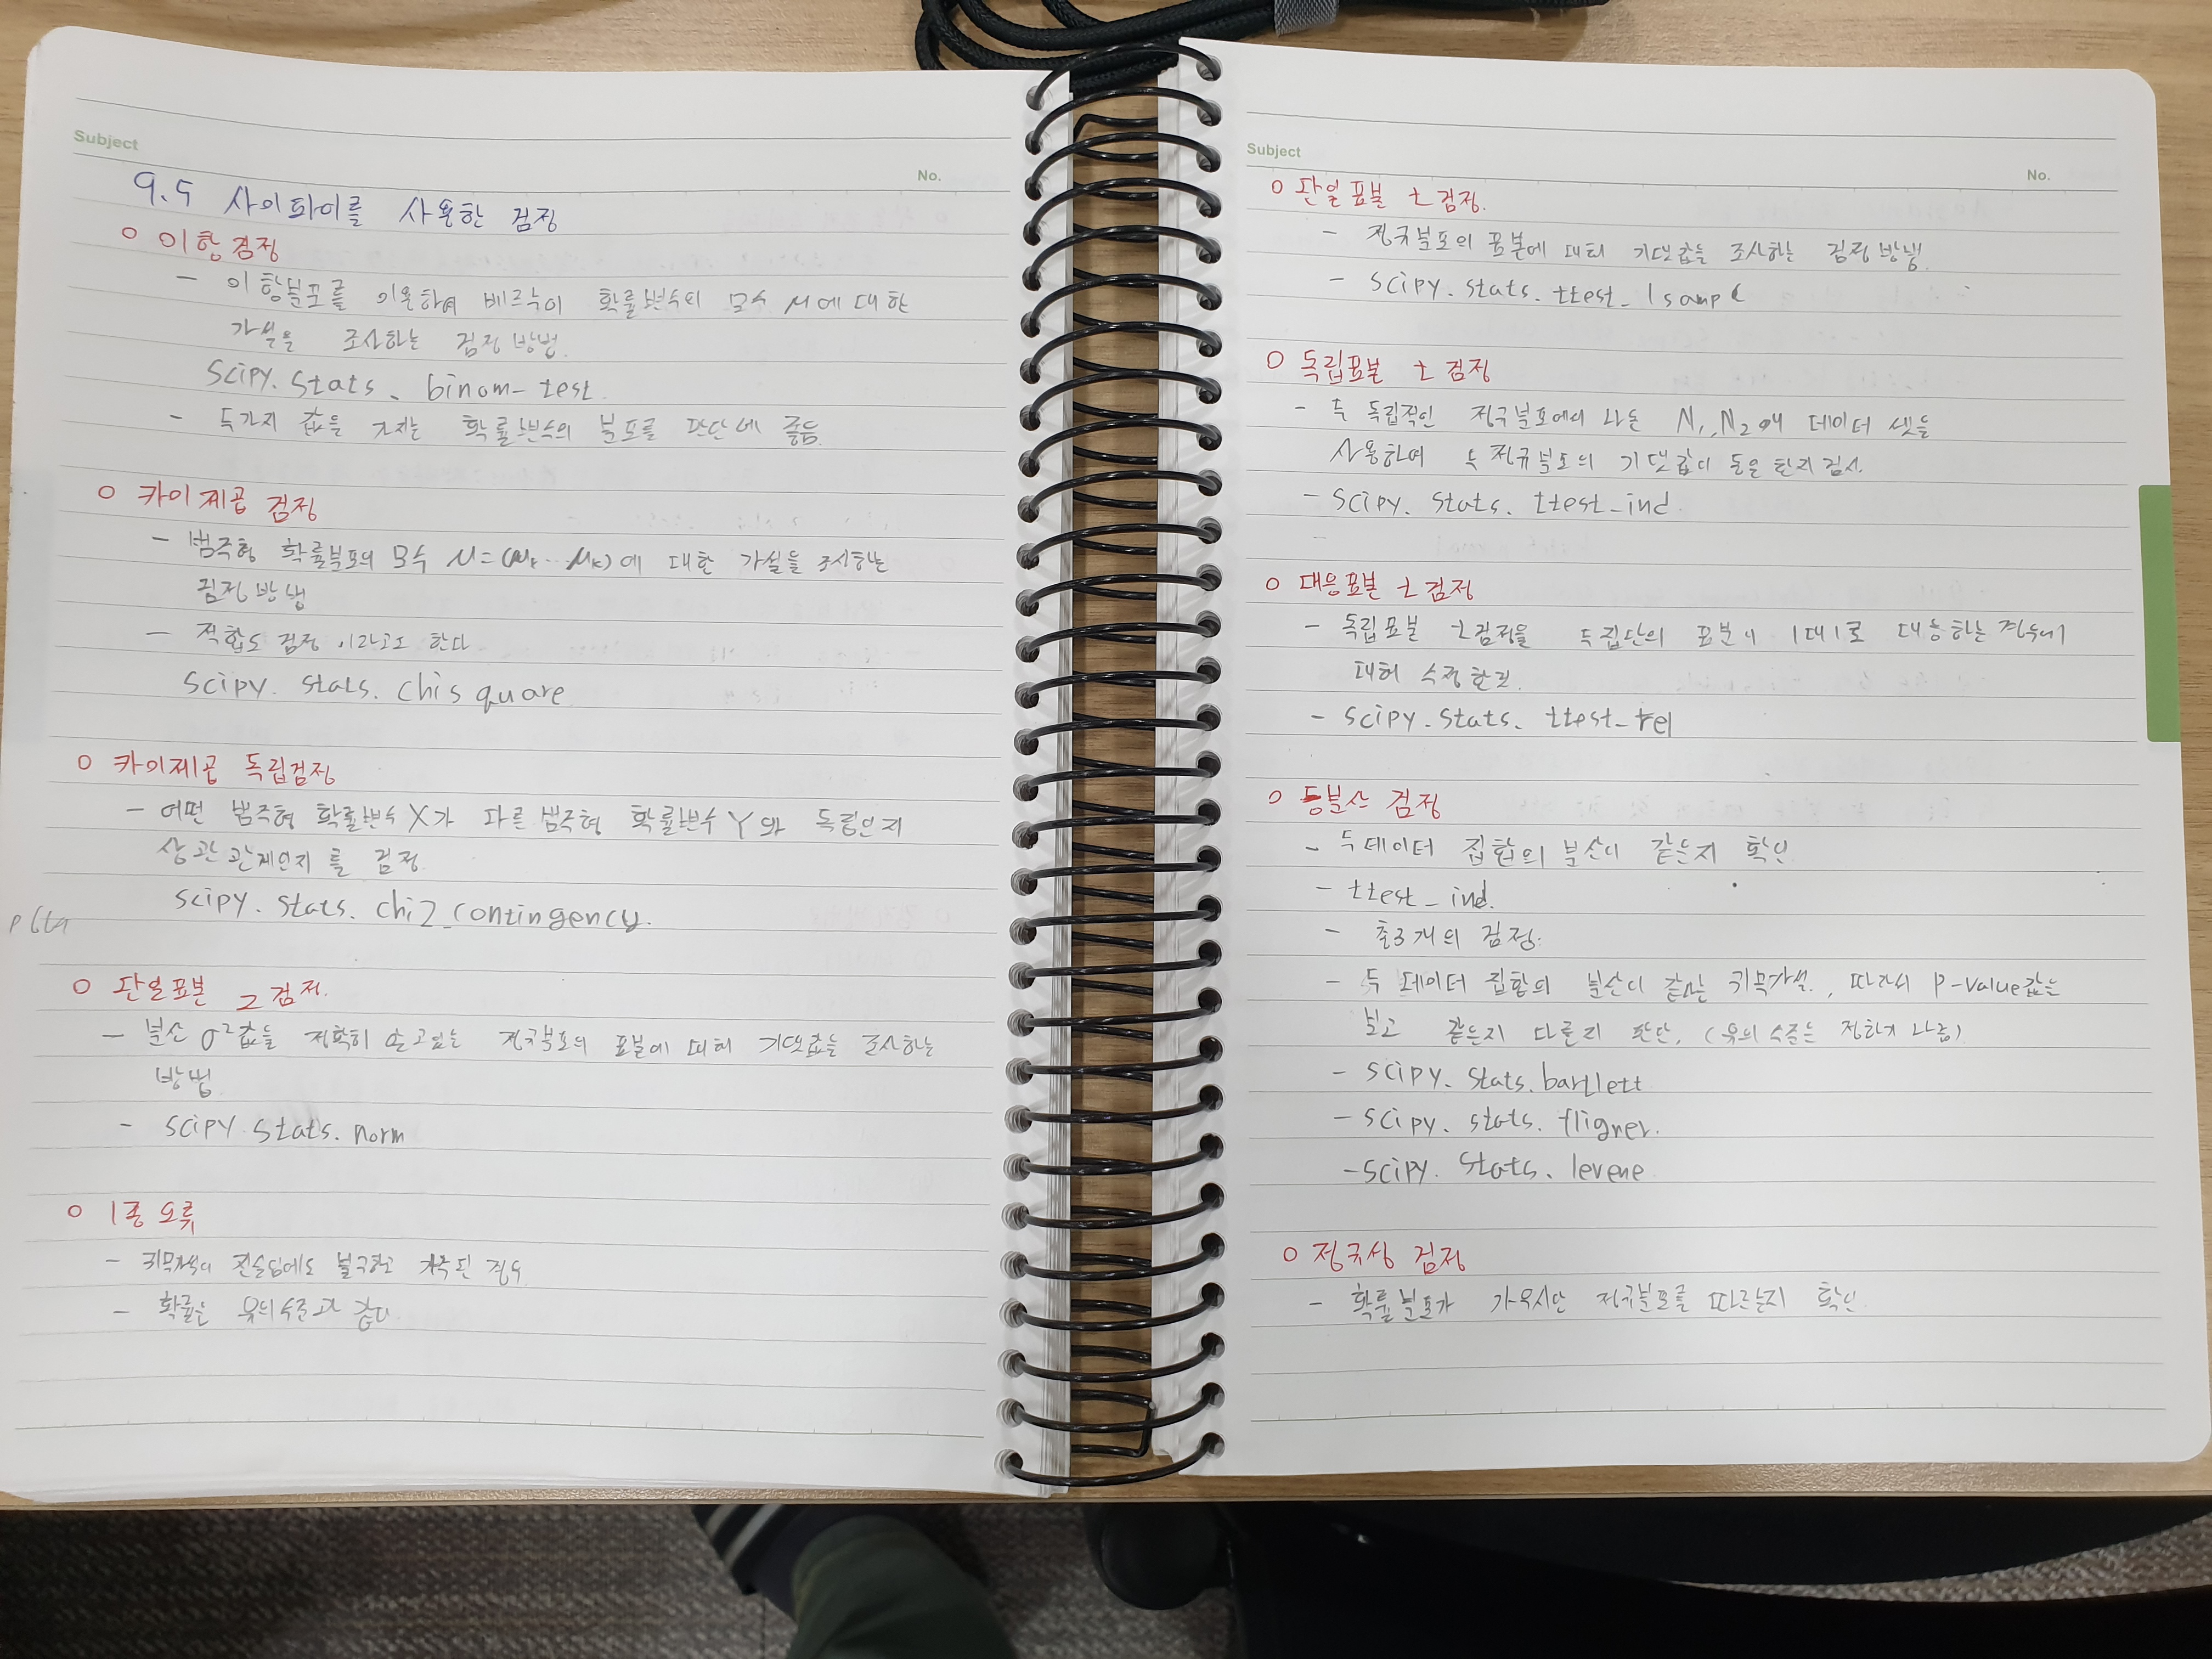 Subject
No.
9.5 사이파이를 사용한 검정
o 이항검정
- 이항분포를 이용하여 베르누이 확률변수의 모수 μ에 대한
가설을 조사하는 검정 방법.
Scipy. Stats. binom_test.
- 두가지 값을 가지는 확률변수의 분포를 판단에 좋음.
o 카이제곱 검정
- 범주형 확률분포의 모수 μ=(μ₁...μₖ)에 대한 가설을 조사하는
검정 방법
- 적합도 검정 이라고도 한다
scipy. stats. chisquare
o 카이제곱 독립검정
- 어떤 범주형 확률변수 X가 다른 범주형 확률변수 Y와 독립인지
상관관계인지 를 검정.
scipy. stats. chi2_contingency.
o 단일표본 z 검정.
- 분산 σ²값을 정확히 알고있는 정규분포의 표본에 대해 기댓값을 조사하는
방법.
- scipy. stats. norm
o 1종 오류
- 귀무가설이 진실임에도 불구하고 기각된 경우
- 확률은 유의수준과 같다
Subject
No.
o 단일표본 t 검정.
- 정규분포의 표본에 대해 기댓값을 조사하는 검정 방법.
- scipy. stats. ttest_1samp
o 독립표본 t 검정
- 두 독립적인 정규분포에서 나온 N₁, N₂개 데이터 셋을
사용하여 두 정규분포의 기댓값이 동일한지 검사.
- scipy. stats. ttest_ind.
-
o 대응표본 t 검정
- 독립표본 t검정을 두 집단의 표본이 1대1로 대응하는 경우에
대해 수정한것.
- scipy. stats. ttest_rel
o 등분산 검정
- 두 데이터 집합의 분산이 같은지 확인
- ttest_ind.
- 총 3개의 검정.
- 두 데이터 집합의 분산이 같다는 귀무가설. , 따라서 P-value값을
보고 같은지 다른지 판단, (유의수준은 정하기 나름)
- scipy. stats. bartlett
- scipy. stats. fligner.
- scipy. stats. levene
o 정규성 검정
- 확률분포가 가우시안 정규분포를 따르는지 확인.